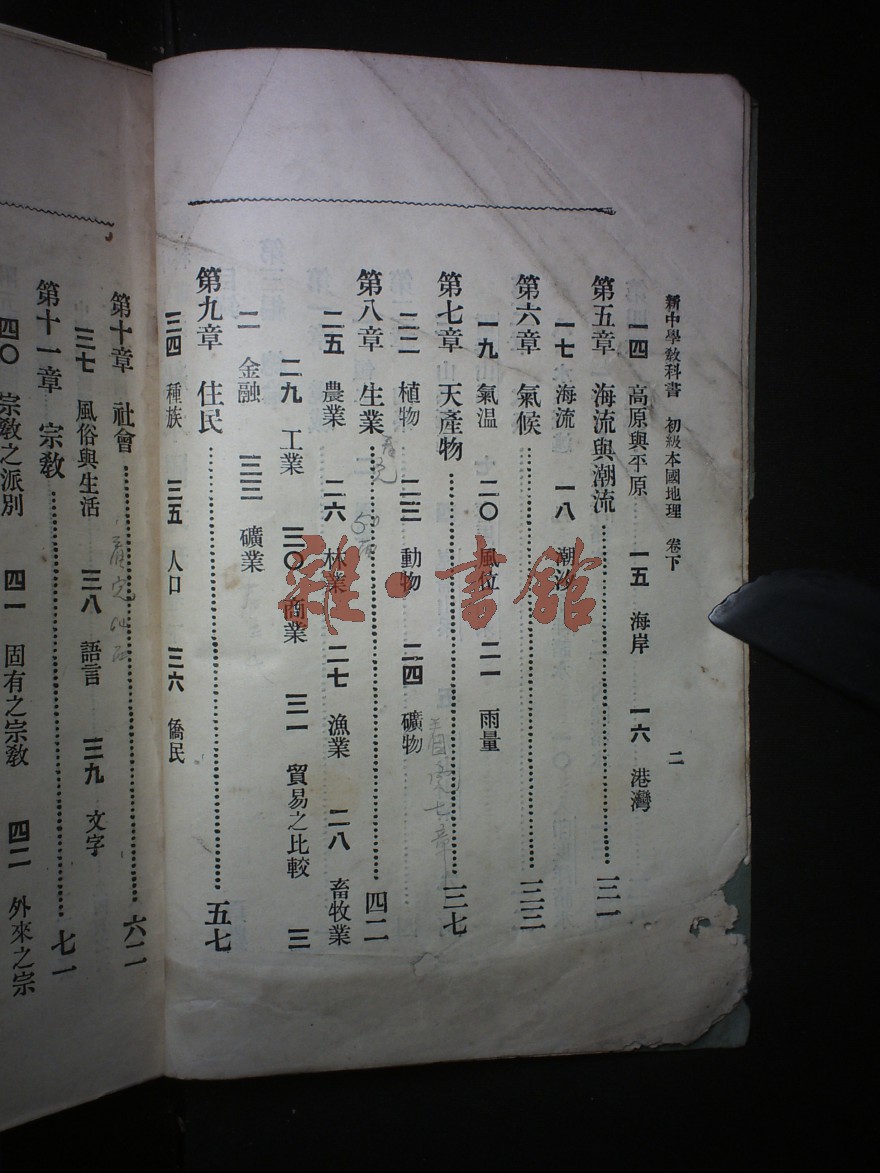 新中學教科書 初級本國地理 卷下 二
一四 高原與平原 一五 海岸 一六 港灣
第五章 海流與潮流……三一
一七 海流 一八 潮汐
第六章 氣候……三三
一九 氣温 二〇 風位 二一 雨量
第七章 天產物……三七
二二 植物 二三 動物 二四 礦物
第八章 生業……四二
二五 農業 二六 林業 二七 漁業 二八 畜牧業
二九 工業 三〇 商業 三一 貿易之比較 三
二 金融 三三 礦業
第九章 住民……五七
三四 種族 三五 人口 三六 僑民
第十章 社會……六二
三七 風俗與生活 三八 語言 三九 文字
第十一章 宗教……七一
四〇 宗教之派別 四一 固有之宗教 四二 外來之宗
雜書館